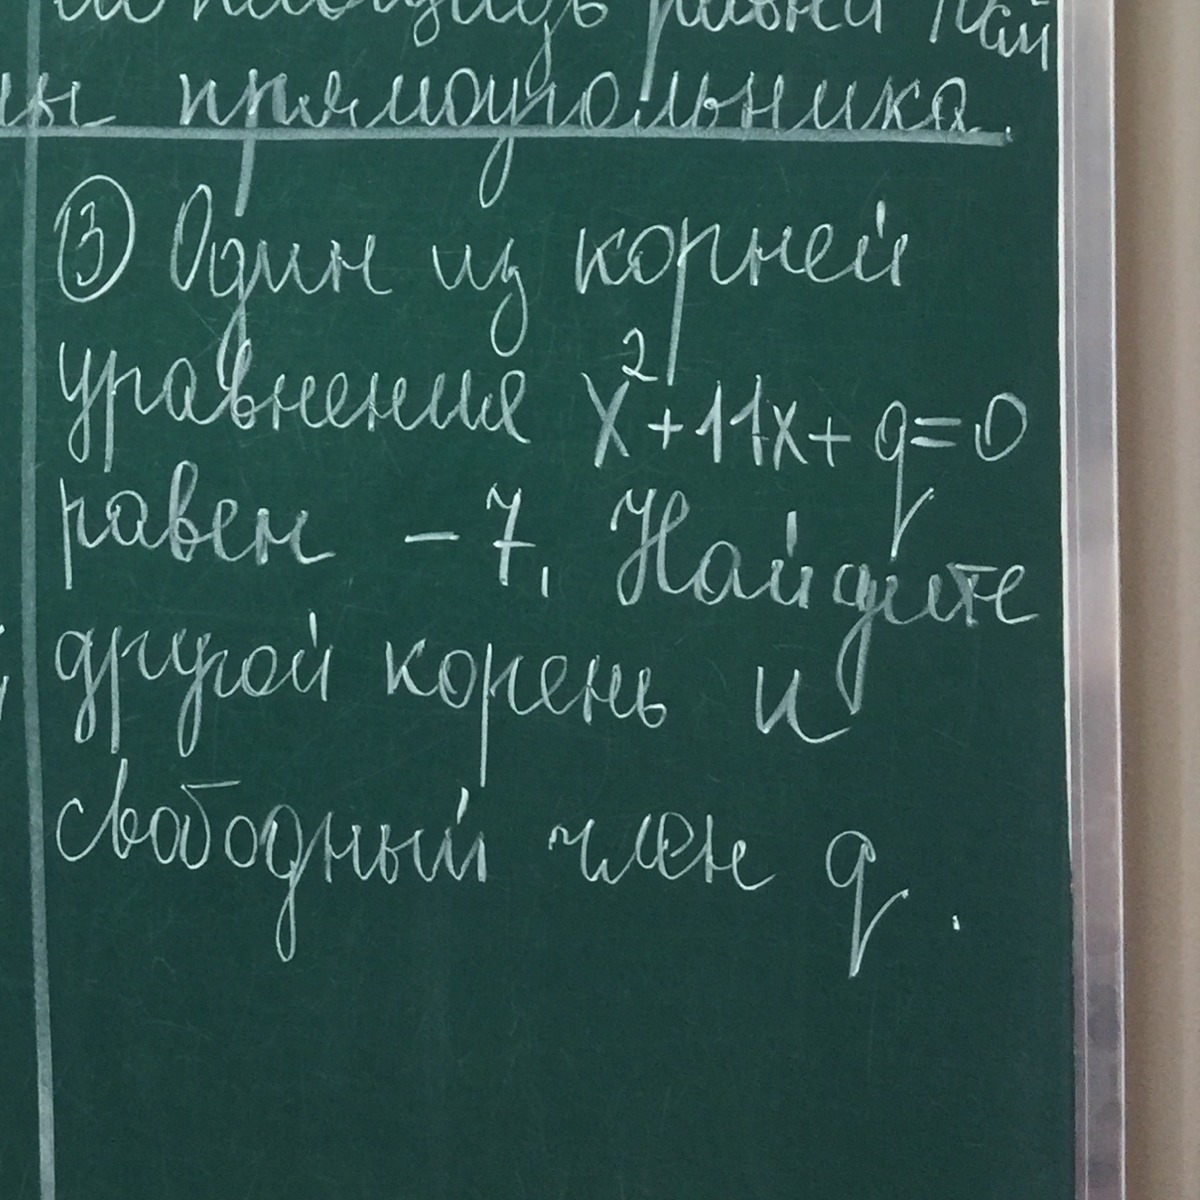 площадь равна
прямоугольника.
③ Один из корней
уравнения x²+11x+q=0
равен -7. Найдите
другой корень и
свободный член q.